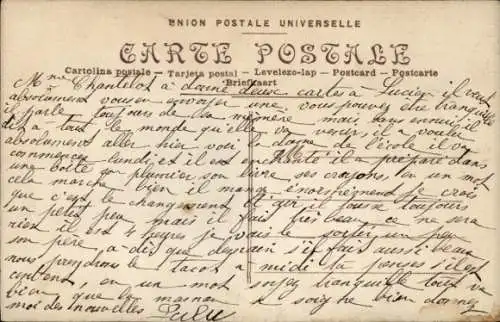 UNION POSTALE UNIVERSELLE
CARTE POSTALE
Cartolina postale — Tarjeta postal — Levelezo-lap — Postcard — Postcarte
Briefkaart
Mme Chantelot à donné deux cartes à Lucien il veut
absolument vous en envoyer une vous pouvez être tranquille
il parle toujours de sa mémère mais sans ennui il
dit à tout le monde qu'elle va venir il a voulu
absolument aller hier voir la dame de l'école il va
commencer lundi et il est enchanté il a préparé dans
une boîte son plumier son livre ses crayons en un mot
cela marche bien il mange énormément je crois
que c'est le changement et qui il tousse toujours
un petit peu mais il fait très beau ce ne sera
rien il est 4 heures je vais le sortir un peu
son père à dit que demain s'il fait aussi beau
nous prendrons le tacot à midi tu penses s'il est
content, en un mot soyez tranquille tout va
bien, que ma maman se soigne bien donnez
moi des nouvelles Lulu